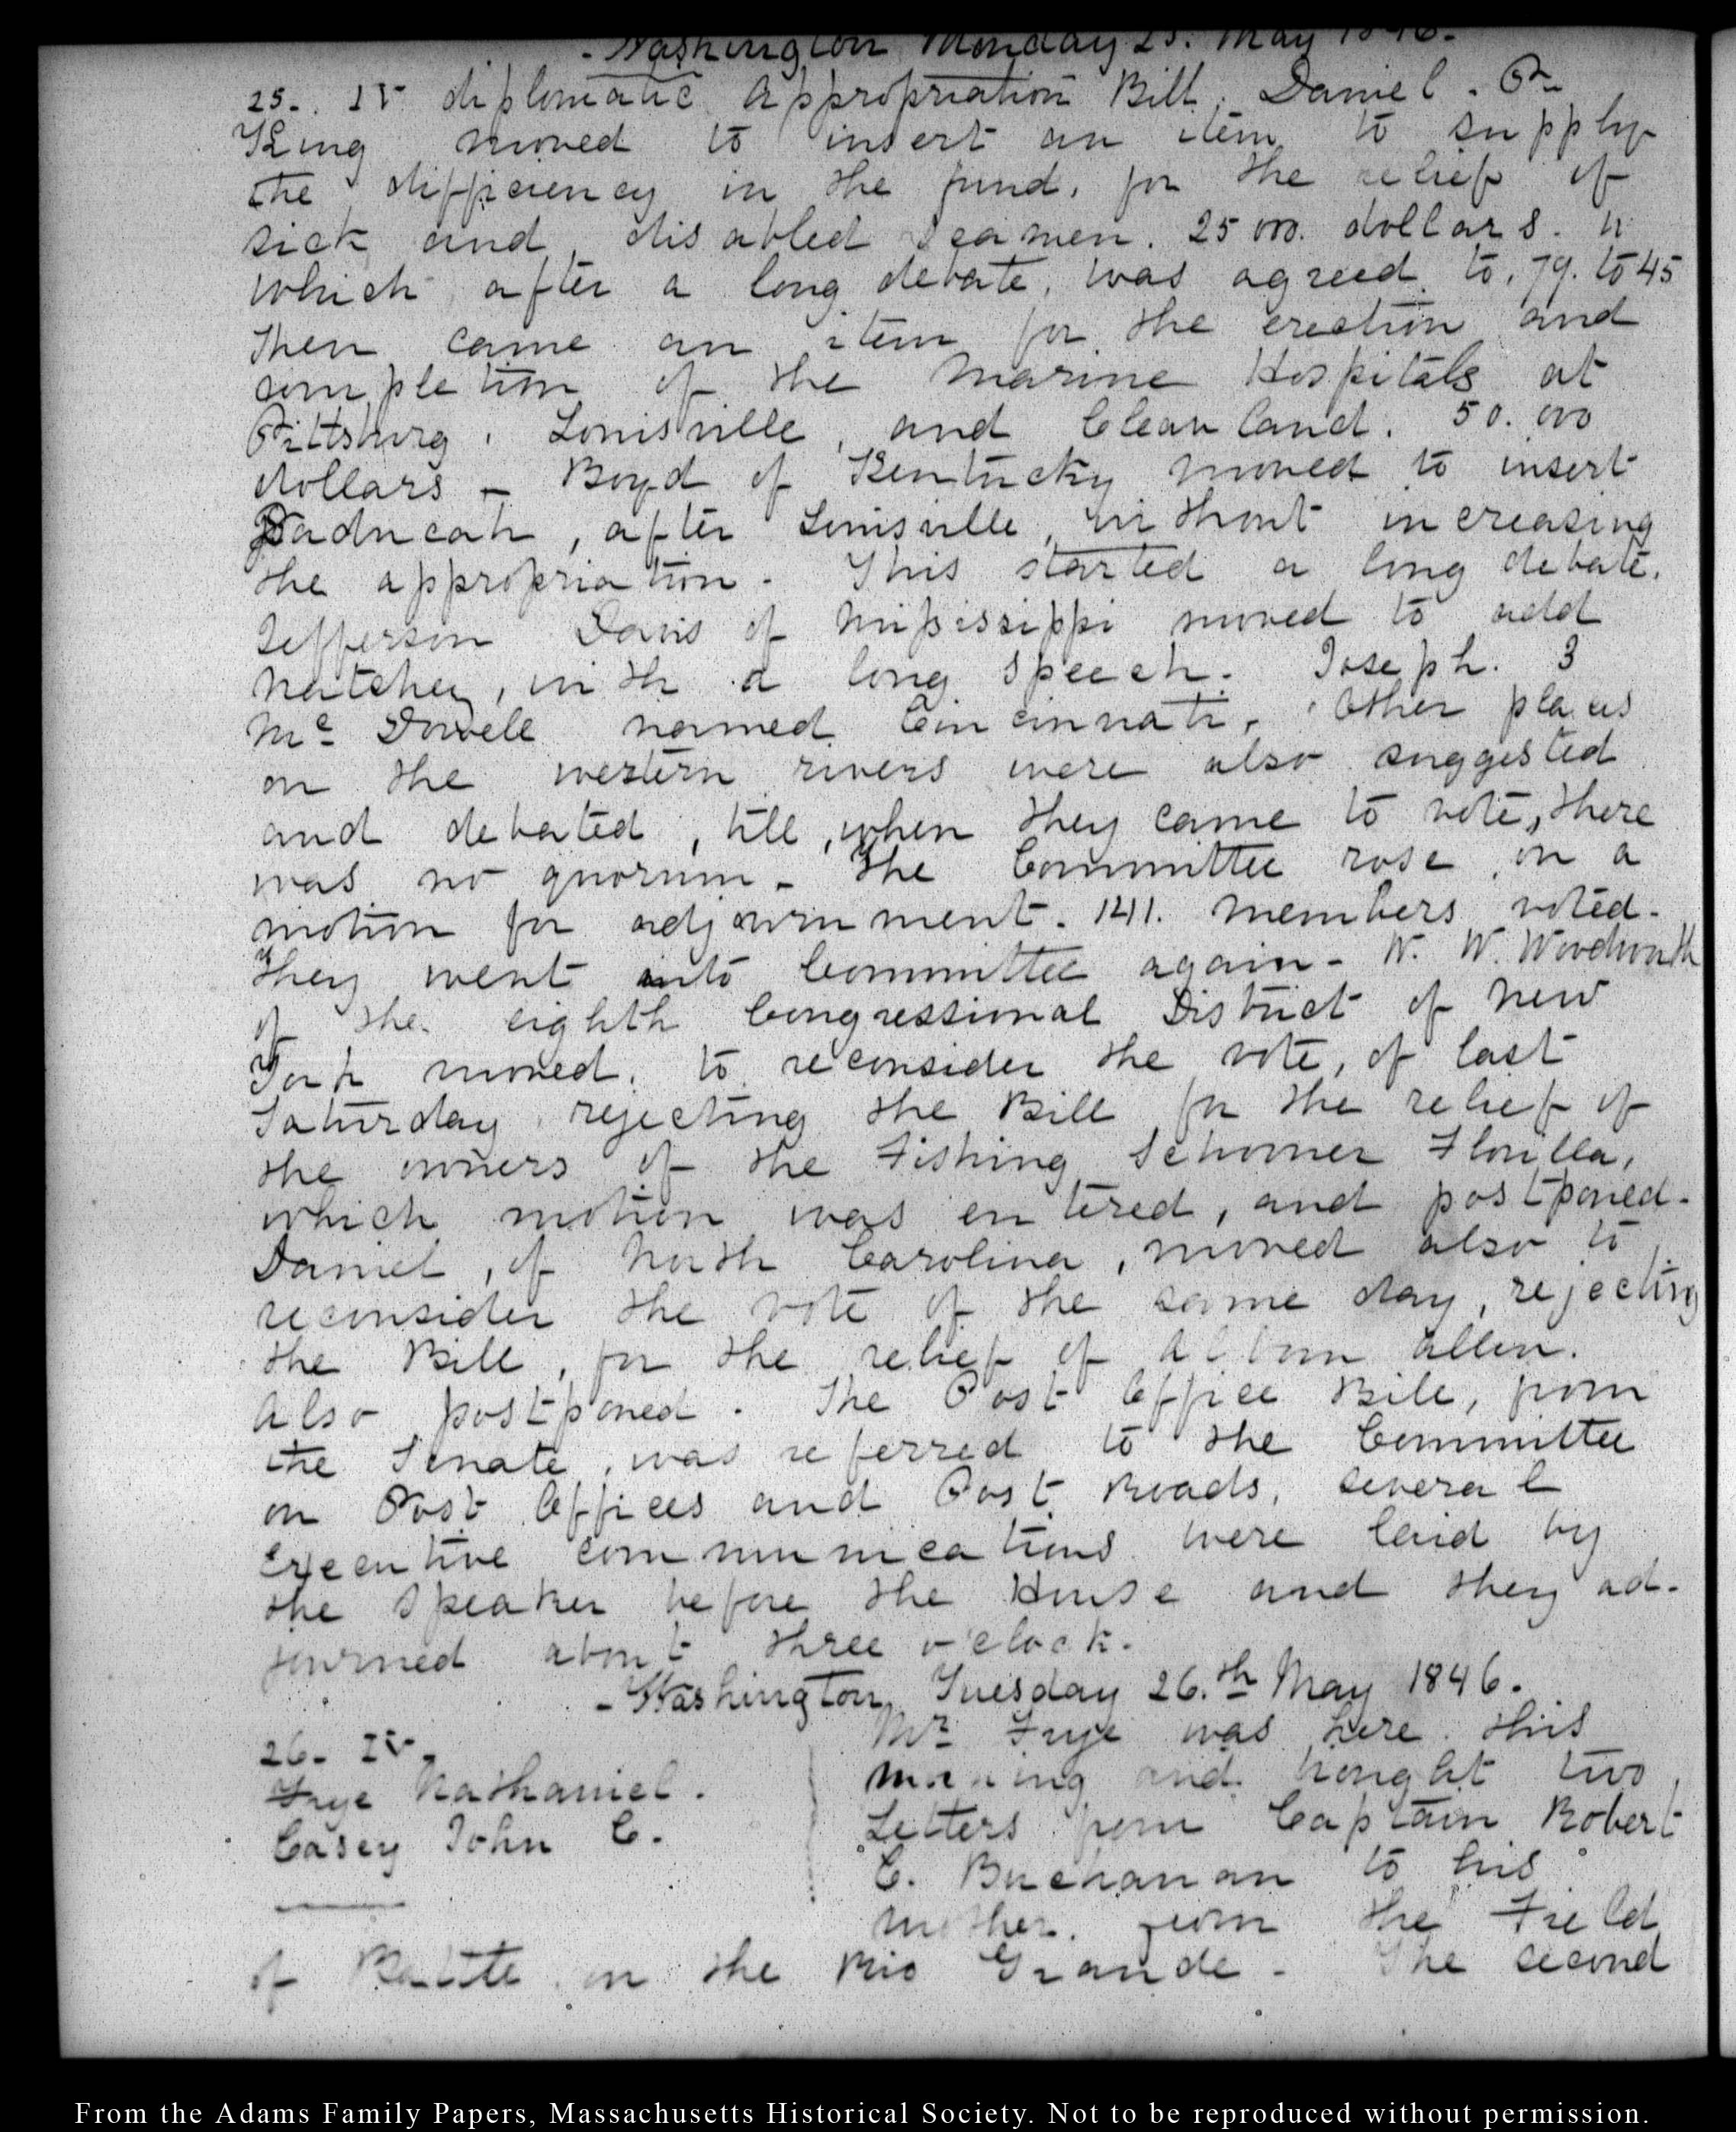 - Washington Monday 25. May 1846-
25. IV diplomatic Appropriation Bill. Daniel. P.
King moved to insert an item to supply
the difficiency in the fund, for the relief of
sick and disabled Seamen. 25000. dollars.
which after a long debate, was agreed to. 79. to 45
Then came an item for the erection and
completion of the Marine Hospitals at
Pittsburg, Louisville, and Cleaveland. 50.000
dollars - Boyd of Kentucky moved to insert
Paducah, after Louisville, without increasing
the appropriation. This started a long debate.
Jefferson Davis of Missisippi moved to add
Natchez, with a long speech. Joseph. J
Mc Dowell named Cincinnati. Other places
on the western rivers were also suggested
and debated, till, when they came to vote, there
was no quorum - The Committee rose, on a
motion for adjournment. 141. members voted.
They went into Committee again - W. W. Woodworth
of the eighth Congressional District of New
York moved. to reconsider the vote, of last
Saturday rejecting the Bill for the relief of
the owners of the Fishing Schooner Florilla,
which motion was entered, and postponed.
Daniel, of North Carolina, moved also to
reconsider the vote of the same day, rejecting
the Bill, for the relief of Allen.
Also postponed. The Post Office Bill, from
the Senate, was referred to the Committee
on Post Offices and Post Roads, several
Executive communications were laid by
the Speaker before the House and they ad-
journed about three o'clock.
- Washington, Tuesday 26.th May 1846.
26. IV.
Frye Nathaniel.
Casey John C.
Mr Frye was here this
morning and brought two
Letters from Captain Robert
C. Buchanan to his
mother. from the Field
of Battle on the Rio Grande - The second
From the Adams Family Papers, Massachusetts Historical Society. Not to be reproduced without permission.